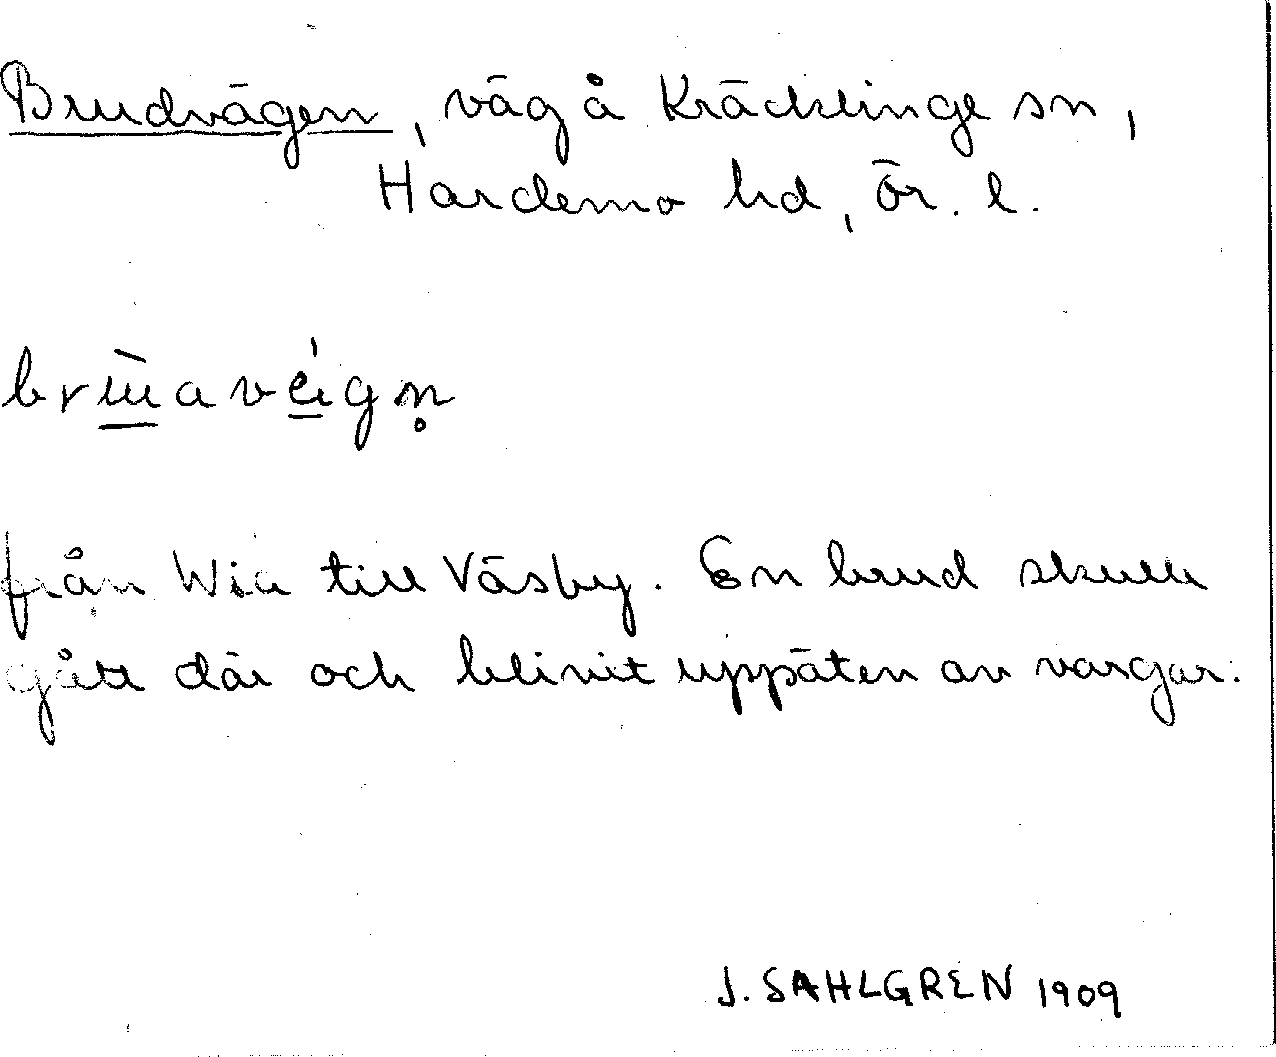 Brudvägen, väg å Kräcklinge sn,
Hardemo hd, Ör. l.
från Wia till Väsby. En brud skulle
gått där och blivit uppäten av vargar.
J. SAHLGREN 1909